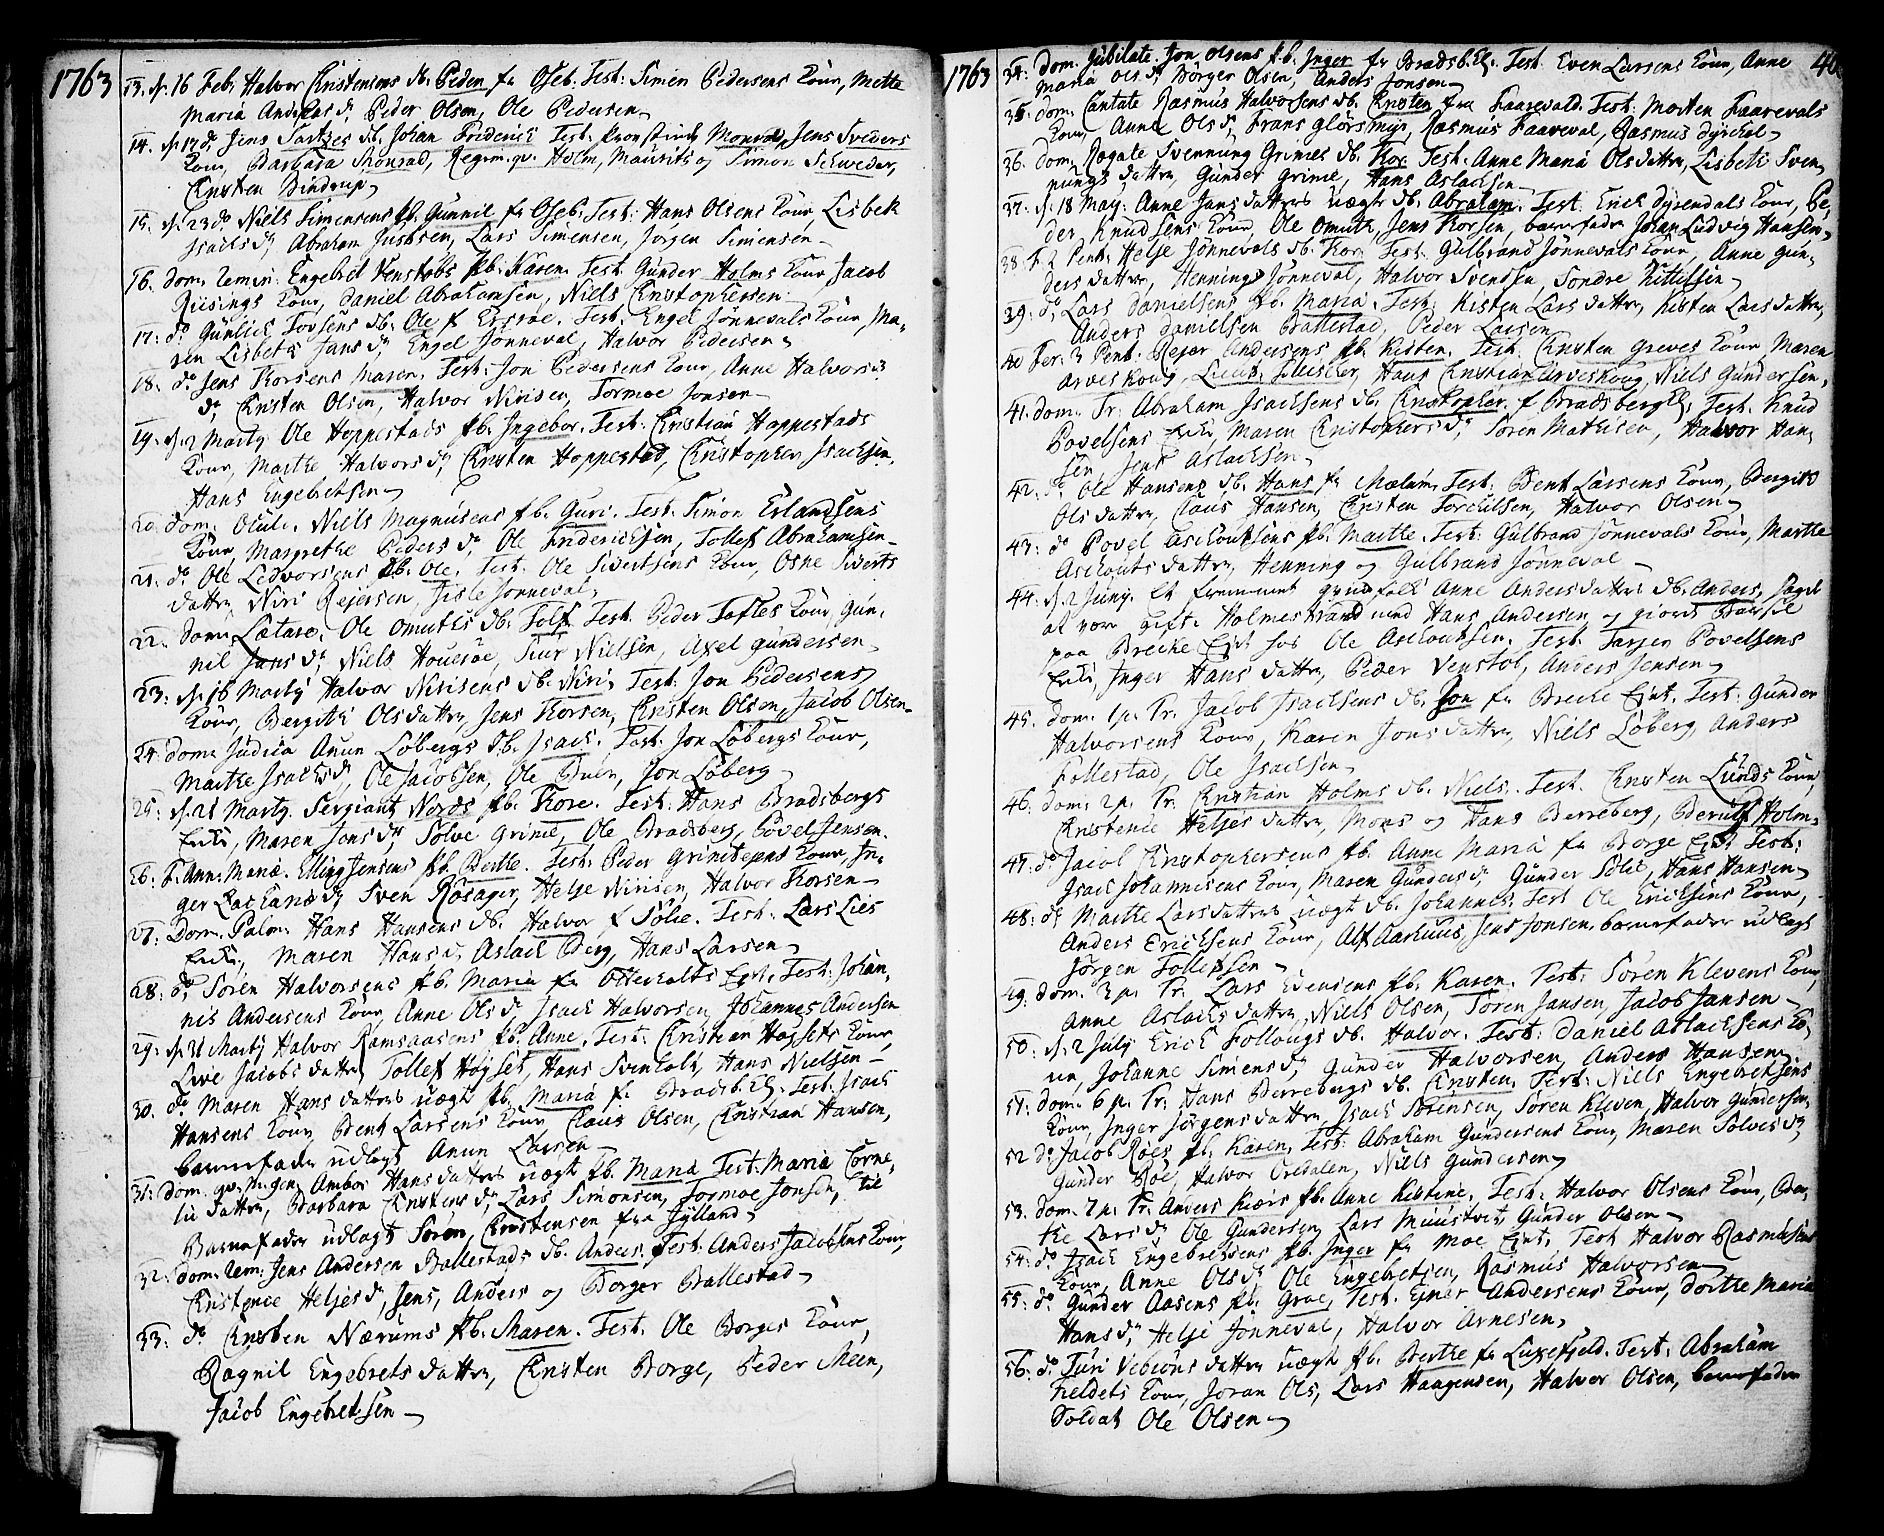 1763
13. d. 16 Feb. Halvor Christensens db. Peder fr Oseb. Test: Simen Pedersens Kone, Mette
Maria Anders dr Peder Olsen, Ole Pedersen
14. d. 17 do Jens db. Johan Friderich Test: Monrad, Jens Sveders
Kone, Barbara Monrad, Regim. qv. Holm, Maurits og Simon Schweder,
Christen Bindrup
15. d. 23 do Niels Simensens pb. Gunnil fr Oseb. Test: Hans Olsens Kone, Lisbet
Isachs dr Abraham Jusbsen, Lars Simensen, Jørgen Simensen
16. Dom. Remin: Engebret Venstøbs pb. Karen. Test: Gunder Holms Kone Jacob
Riisings Kone, Daniel Abrahamsen, Niels Christophersen
17. do Gunlich Tovsens db. Ole f. Test: Engel Jønnevals Kone, Ma-
ren Lisbeth Jans dr Engel Jønneval, Halvor Pedersen
18. do Jens Thorsens Maren. Test: Jon Pedersens Kone, Anne Halvors
dr, Christen Olsen, Halvor Nirisen, Tormoe Jonsen
19. d. 2 Marty Ole Hoppestads pb. Ingebor. Test: Christian Hoppestads
Kone, Marthe Halvors dr Christen Hoppestad, Christopher Isachsen,
Hans Engebretsen
20. Dom. Oculi. Niels Magnusens pb. Guri. Test: Simon Erlandsens
Kone, Margrethe Peders dr, Ole Friderichsen, Tollef Abrahamsen
21. do Ole Ledvorsens pb. Ole. Test: Ole Sivertsens Kone, Osne Siverts
datter Niri Rejersen, Gisle Jønneval
22. Dom. Lætare. Ole Omuths db. Tolf. Test: Peder Toftes Kone, Gun-
nil Jans dr Niels Houesøe, Tiur Nielsen, Axel Gundersen
23. d. 16 Marty Halvor Nirisens db. Niri, Test: Jon Pedersens
Kone, Bergithe Olsdatter, Jens Thorsen, Christen Olsen, Jacob Olsen
24. Dom. Judica Anun Løbergs db. Isach. Test: Jon Løbergs Kone,
Marthe Isachs dr, Ole Jacobsen, Ole Buer, Jon Løberg
25. d. 21 Marty. Sergiant Nords pb. Thore. Test: Hans Bradsbergs
Enke, Maren Jens dr Solve Grinie, Ole Bradsberg, Povel Jensen.
26. F. Ann: Mariæ. Elling Jensens pb. Berthe. Test: Peder Grinitejens Kone, In-
ger Zachariæ dr Sven Rosager, Helje Nirisen, Halvor Thorsen
27. Dom. Palm: Hans Hansens db. Halvor f Solie. Test: Lars Lies
Enke, Maren Hans dr Aslach Berg, Hans Larsen
28. do Søren Halvorsens pb. Maria fr Otterholts Eyet. Test: Johan-
nis Andersens Kone, Anne Ols dr Isach Halvorsen, Johannes Andersen
29. d. 31 Marty Halvor Ramsaasens pb. Anne. Test: Christian Høysets Kone,
Live Jacobs datter Tollef Høyset, Hans Svenkolt, Hans Nielsen
30. do Maren Hans datters uægt pb. Maria fr Bradsb. Eg. Test: Isach
Hansens Kone, Bent Larsens Kone, Claus Olsen, Christian Hansen,
barnefader udlagt Anun Larsen
31. Dom. qv. M. gen: Ambor Hans datters uægt pb. Maria Test: Maria Corne-
lii datter, Barbara Christens dr, Lars Simonsen, Tormoe Jonsen, til
Barnefader udlagt Søren Christensen fra Jylland
32. Dom. Rem: Jens Andersen Ballestads db. Anders. Test: Anders Jacobsens Kone,
Christence Heljes dr, Jens, Anders og Borger Ballestad
33. do Christen Nærums pb. Maren. Test: Ole Borges Kone,
Ragnil Engebrets datter, Christen Borge, Peder Meen,
Jacob Engebretsen
1763
34. Dom. Jubilate. Jon Olsens pb. Inger fr Bradsb. Eg. Test: Even Larsens Kone, Anne
Maria Ols dr Børger Olsen, Anders Jonsen
35. dom. Cantate Rasmus Halvorsens db. Christen fra Faarevald. Test: Morten Faarevals
Kone, Anne Ols dr, Frans Glørsmyr, Rasmus Faareval, Rasmus Dyrchol
36. Dom. Rogate Svennung Grinies db. Thor Test: Anne Maria Olsdatter, Lisbeth Sven-
nungs datter, Gunder Grinie, Hans Aslachsen
37. d. 18 May: Anne Jans datters uægte db. Abraham. Test: Erich Dyrendals Kone, Pe-
der Knudsens Kone, Ole Omuth, Jens Thorsen, barnefader Johan Ludvig Hansen
38. F. 2 Pent. Helje Jønnevals db. Thor Test: Gulbrand Jønnevals Kone, Anne Gun-
ders datter, Henning Jønneval, Halvor Svendsen, Sondre Kittilsen
39. do Lars Danielsens pb. Maria. Test: Kisten Lars datter, Kisten Lars datter,
Anders Danielsen Ballestad, Peder Larsen
40 Fer. 3 Pent. Rejer Andersens pb. Kisten. Test. Christen Greves Kone Maren
Arveskoug, Hans Christian Arveskoug, Niels Gundersen,
41. dom. Tr: Abraham Isachsens db. Christopher f Bradsberg Eg. Test: Knud
Povelsens Enke, Maren Christophers dr Søren Mathisen, Halvor Han-
sen, Jens Aslachsen
42. do Ole Hansens db. Hans fr Mælum. Test: Bent Larsens Kone, Bergith
Ols datter, Claus Hansen, Christen Torchilsen, Halvor Olsen
43. do Povel Aschoutsens pb. Marthe. Test: Gulbrand Jønnevals Kone, Marthe
Aschouts datter, Henning og Gulbrand Jønneval
44. d. 2 Juny. Et fremmet qvindfolk Anne Anders datters db. Anders, sagde
at vere gift i Holmestrand med Hans Andersen og giorde Barsel
paa Breche Eyet hos Ole Aschoutsen. Test: Torjer Povelsens
Enke, Inger Hans datter, Peder Venstøb, Anders Jensen
45. dom. 1 p. Tr. Jacob Isachsens db. Jon fr Breche Eyet. Test: Gunder
Halvorsens Kone, Karen Jons datter, Niels Løberg, Anders
Follestad, Ole Isachsen
46. dom. 2 p. Tr. Christian Holms db. Niels. Test. Christen Lunds Kone,
Christence Heljes datter, Mons og Hans Berreberg, Berulf Holm
47. do Jacob Christophersens pb. Anne Maria fr Borge Eyet Test:
Isach Johannisens Kone, Maren Gunders dr Gunder Solie, Hans Hansen
48. do Marthe Larsdatters uægt db. Johannes. Test: Ole Erichsens Kone,
Anders Erichsens Kone, Alf Aarhuus, Jens Jonsen, barnefader udlagt
Jørgen Tollefsen
49. dom. 3 p. Tr. Lars Edensens pb. Karen. Test: Søren Klevens Kone,
Anne Aslachs datter, Niels Olsen, Søren Jansen, Jacob Jansen
50. d. 2 July Erich Follougs db. Halvor. Test: Daniel Aslachsens Ko-
ne, Johanne Simens dr, Gunder Halvorsen, Anders Hansen
51. dom. 6 p. Tr. Hans Berrebergs db. Christen. Test: Niels Engebretsens
Kone, Inger Jørgensdatter, Isach Sørensen, Søren Kleven, Halvor Gundersen
52 do Jacob Roes pb. Karen. Test: Abraham Gundersens Kone, Maren Solves dr
Gunder Roe, Halvor Orebalen, Niels Gundersen
53. dom. 7 p. Tr. Anders Kiærs pb. Anne Kistine. Test: Halvor Olsens Kone, Ber-
the Lars dr Ole Gundersen, Lars Muustvet, Gunder Olsen
54. do Isach Engebretsens pb. Inger fr Moe Eyet. Test Halvor Rasmusens
Kone, Anne Ols dr Ole Engebretsen, Rasmus Halvorsen
55. do Gunder Aasens pb. Groe, Test. Ejner Andersens Kone, Dorthe Maria
Hans dr, Helje Jønneval, Halvor Arnesen,
56. do Turi Vebiøns datters uægte pb. Berthe fr Luxefjeld. Test: Abraham
Fieldets Kone, Joran Ols, Lars Haagensen, Halvor Olsen, barnefader
Soldat Ole Olsen